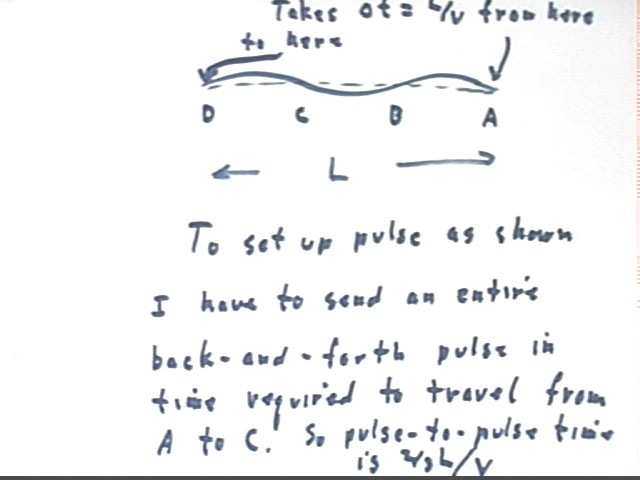 Takes Δt = L/v from here
to here
D C B A
L
To set up pulse as shown
I have to send an entire
back-and-forth pulse in
time required to travel from
A to C. So pulse-to-pulse time
is 2/3 L/V